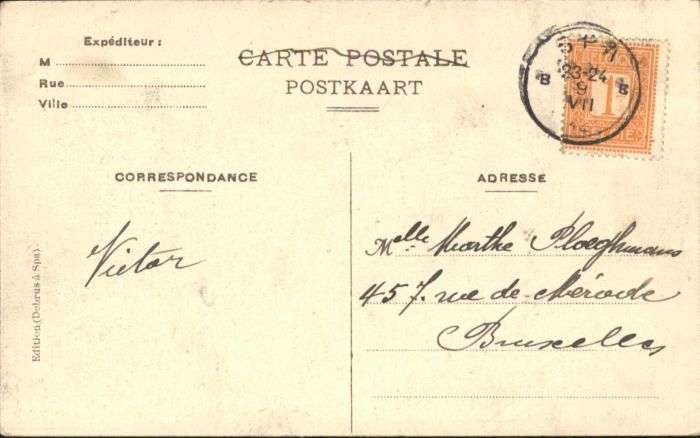 Expéditeur :
M
Rue
Ville
CARTE POSTALE
POSTKAART
SPA
23-24
9
VII
B B
1
CORRESPONDANCE
ADRESSE
Victor
Melle Marthe Ploeghmans
457. rue de Mérode
Bruxelles
Edition (Debrus à Spa)